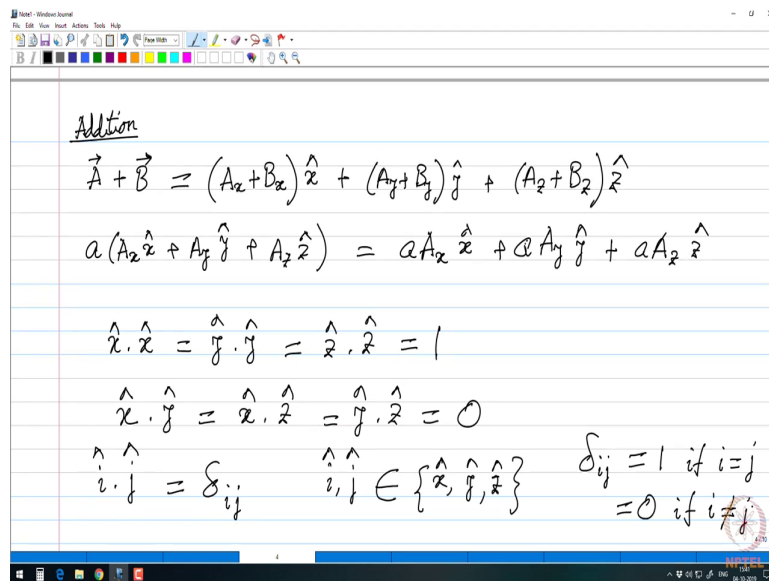 Note1 - Windows Journal
File Edit View Insert Actions Tools Help
Page Width
B I
Addition
$\vec{A} + \vec{B} = (A_x + B_x)\hat{x} + (A_y + B_y)\hat{y} + (A_z + B_z)\hat{z}$
$a(A_x\hat{x} + A_y\hat{y} + A_z\hat{z}) = aA_x\hat{x} + aA_y\hat{y} + aA_z\hat{z}$
$\hat{x}.\hat{x} = \hat{y}.\hat{y} = \hat{z}.\hat{z} = 1$
$\hat{x}.\hat{y} = \hat{x}.\hat{z} = \hat{y}.\hat{z} = 0$
$\hat{i}.\hat{j} = \delta_{ij}$ $\hat{i},\hat{j} \in \{\hat{x},\hat{y},\hat{z}\}$ $\delta_{ij} = 1$ if $i=j$
$=0$ if $i \neq j$
4
NPTEL
ENG
04-10-2019